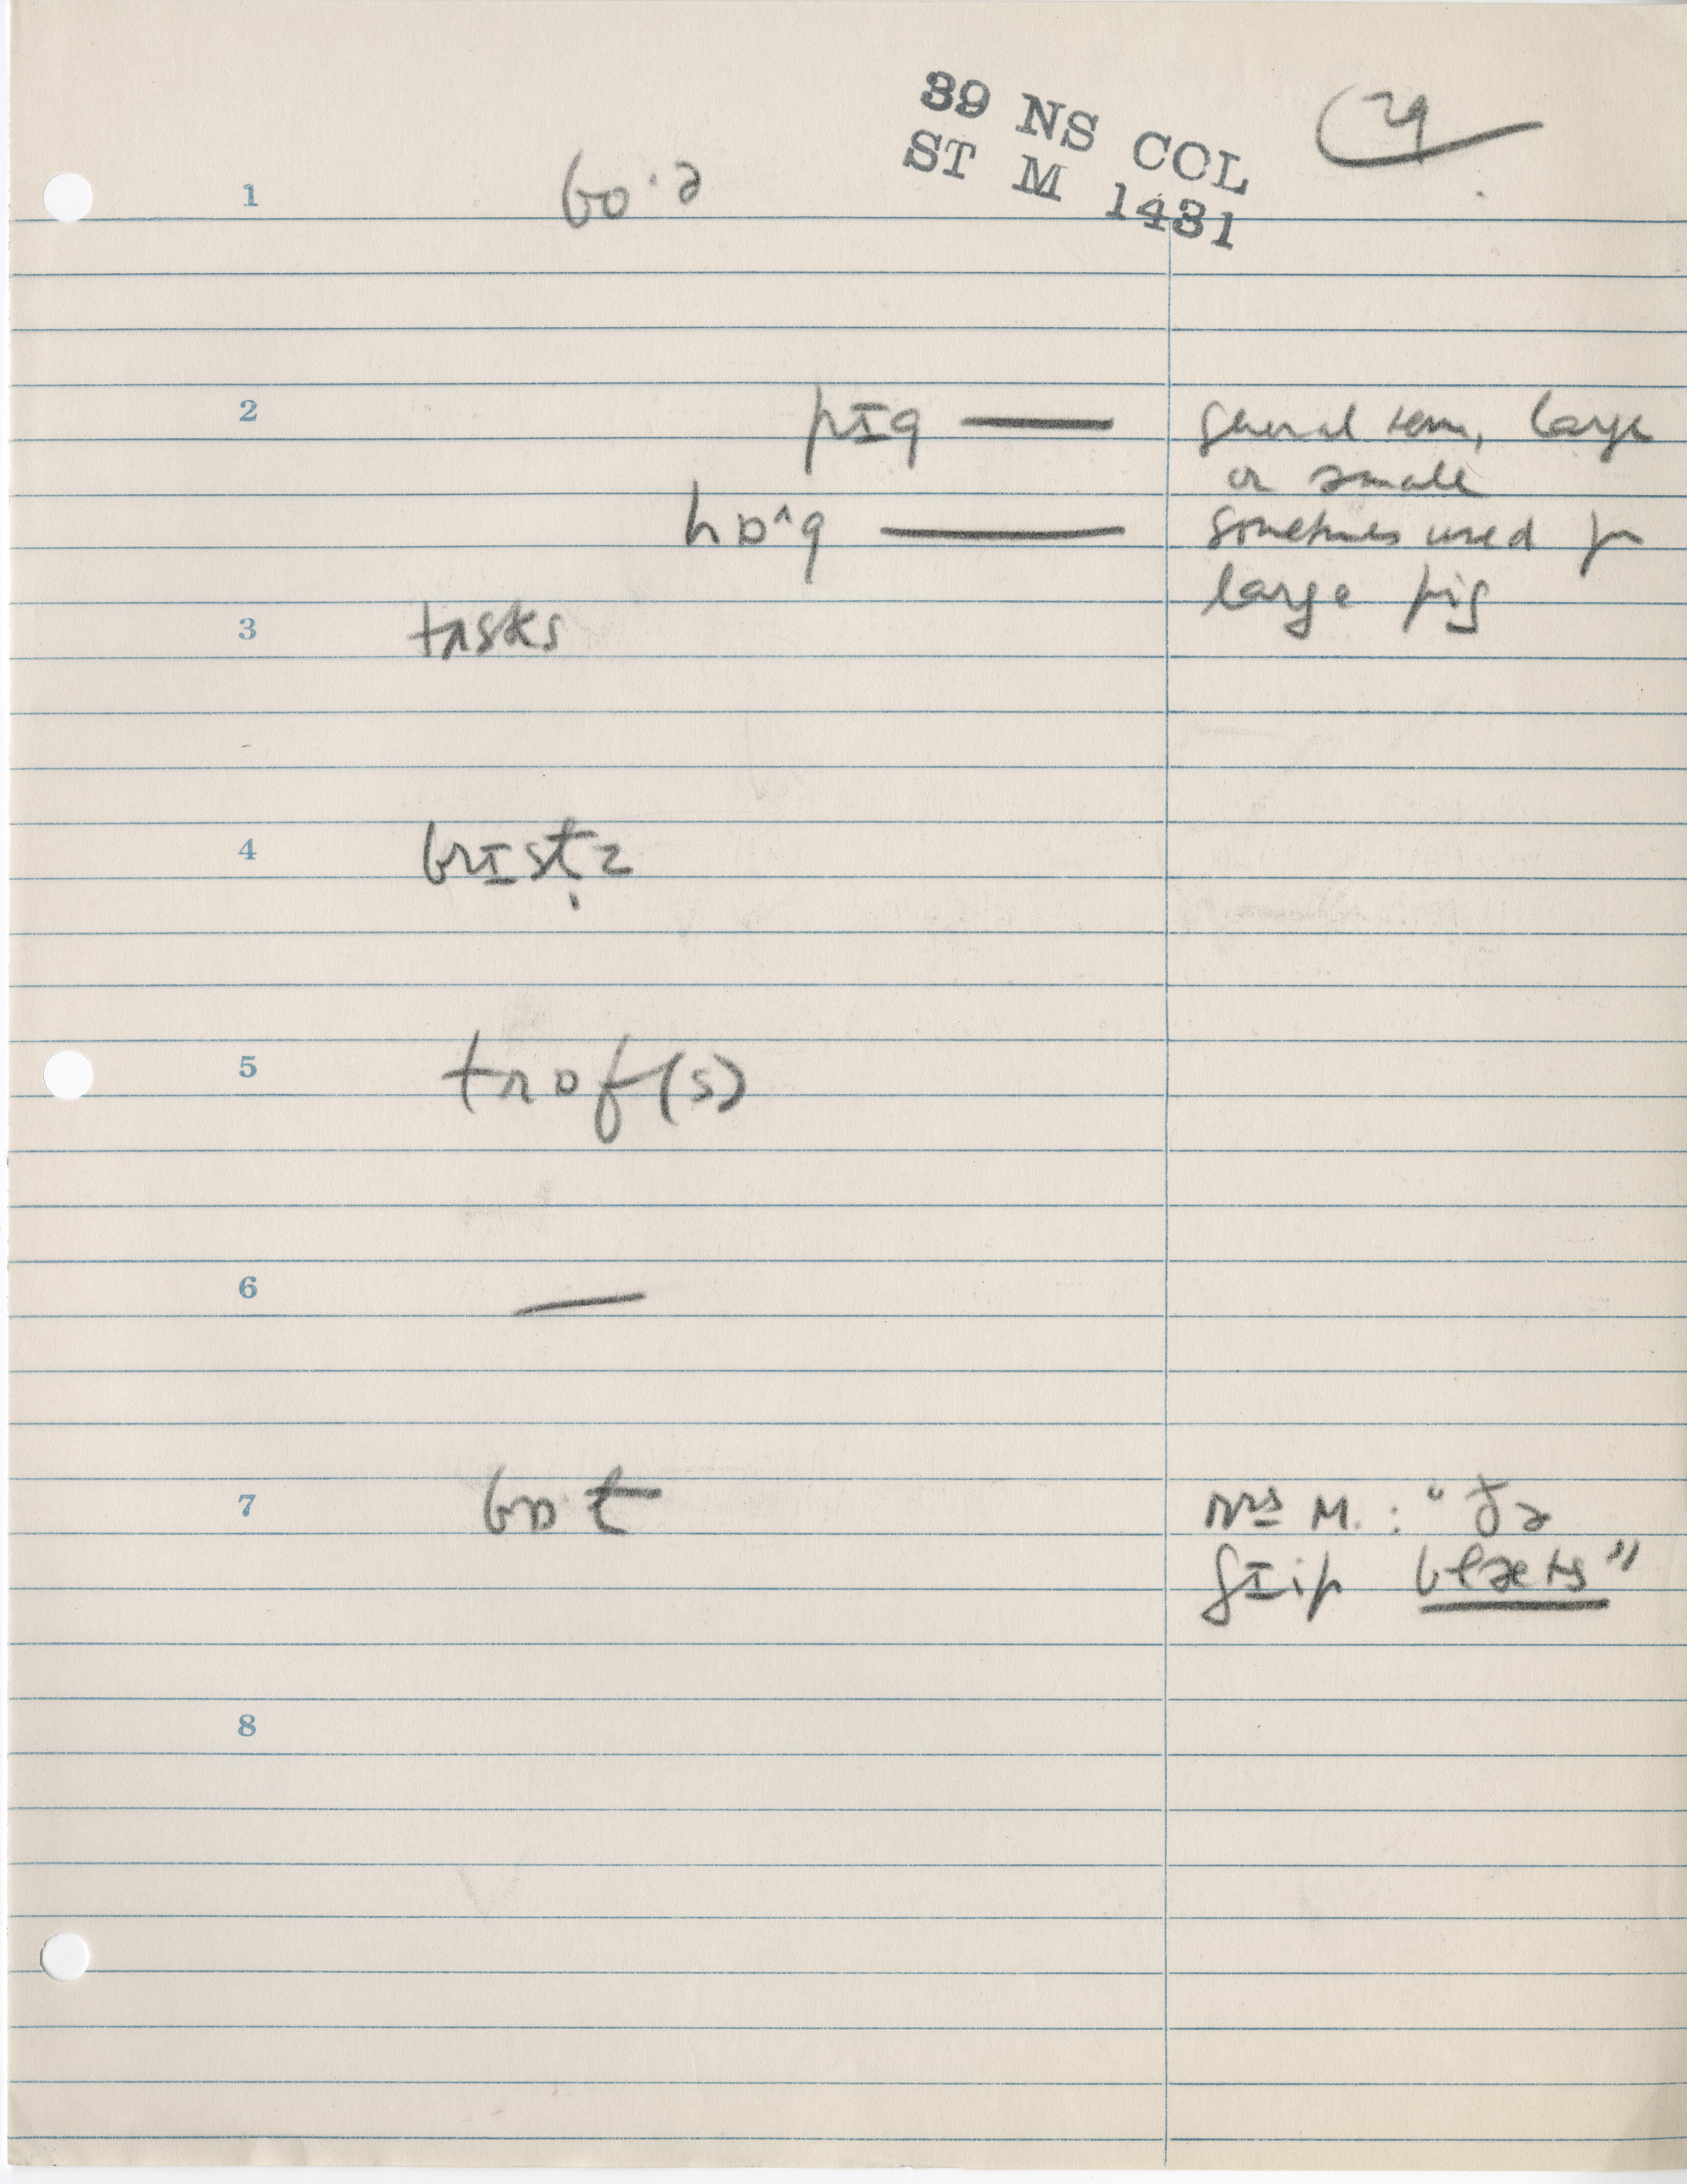 39 NS COL
ST M 1431
29
1 bo·ə
2 pɪg — general term, large
or small
hɒ^g — sometimes used for
large pig
3 tʌsks
4 brɪstl̩z
5 trɒf(s)
6 —
7 Mrs M. : "ðə
ʃɪip blæts"
8